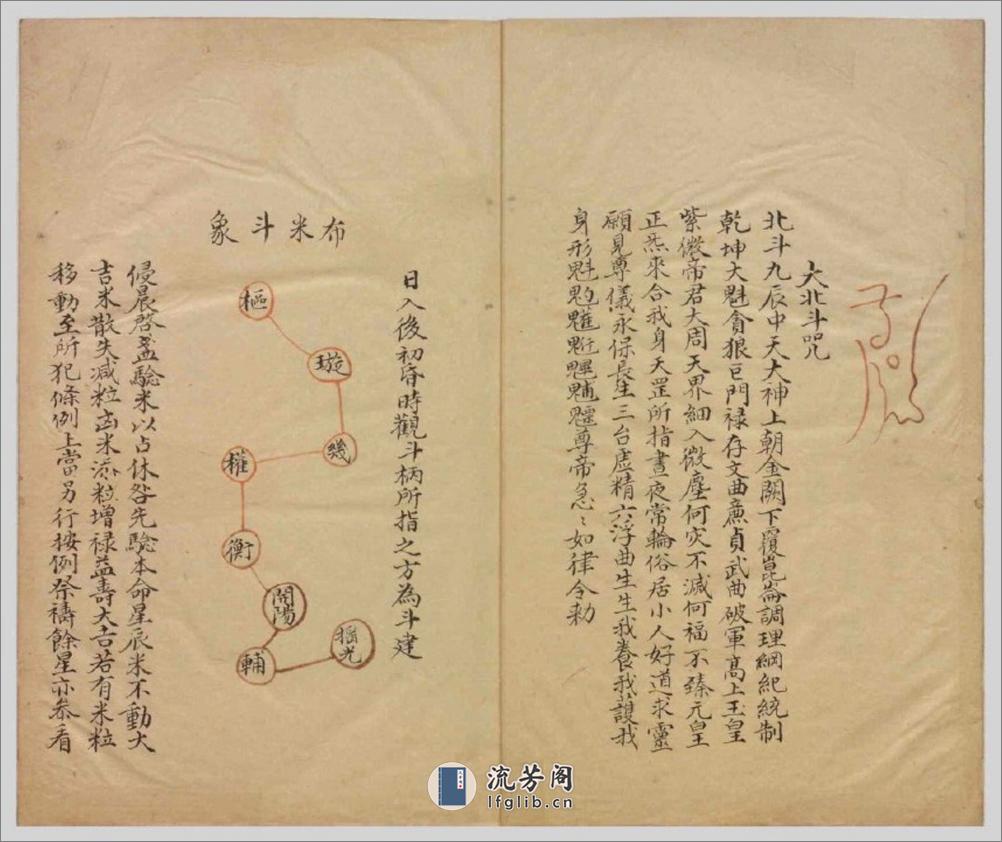 大北斗咒
北斗九辰中天大神上朝金闕下覆崑崙調理綱紀統制
乾坤大魁貪狼巨門禄存文曲廉貞武曲破軍高上玉皇
紫微帝君大周天界細入微塵何灾不滅何福不臻元皇
正炁來合我身天罡所指晝夜常輪俗居小人好道求靈
願見尊儀永保長生三台虛精六淳曲生生我養我護我
身形魁𩲃䰢魓𩳐魒尊帝急〻如律令勅
日入後初昏時觀斗柄所指之方為斗建
布米斗象
樞
璇
幾
權
衡
開陽
輔
摇光
侵晨啓盖驗米以占休咎先驗本命星辰米不動大
吉米散失減粒凶米添粒增禄益壽大吉若有米粒
移動至所犯條例上當另行按例祭禱餘星亦叅看
流芳阁
lfglib.cn